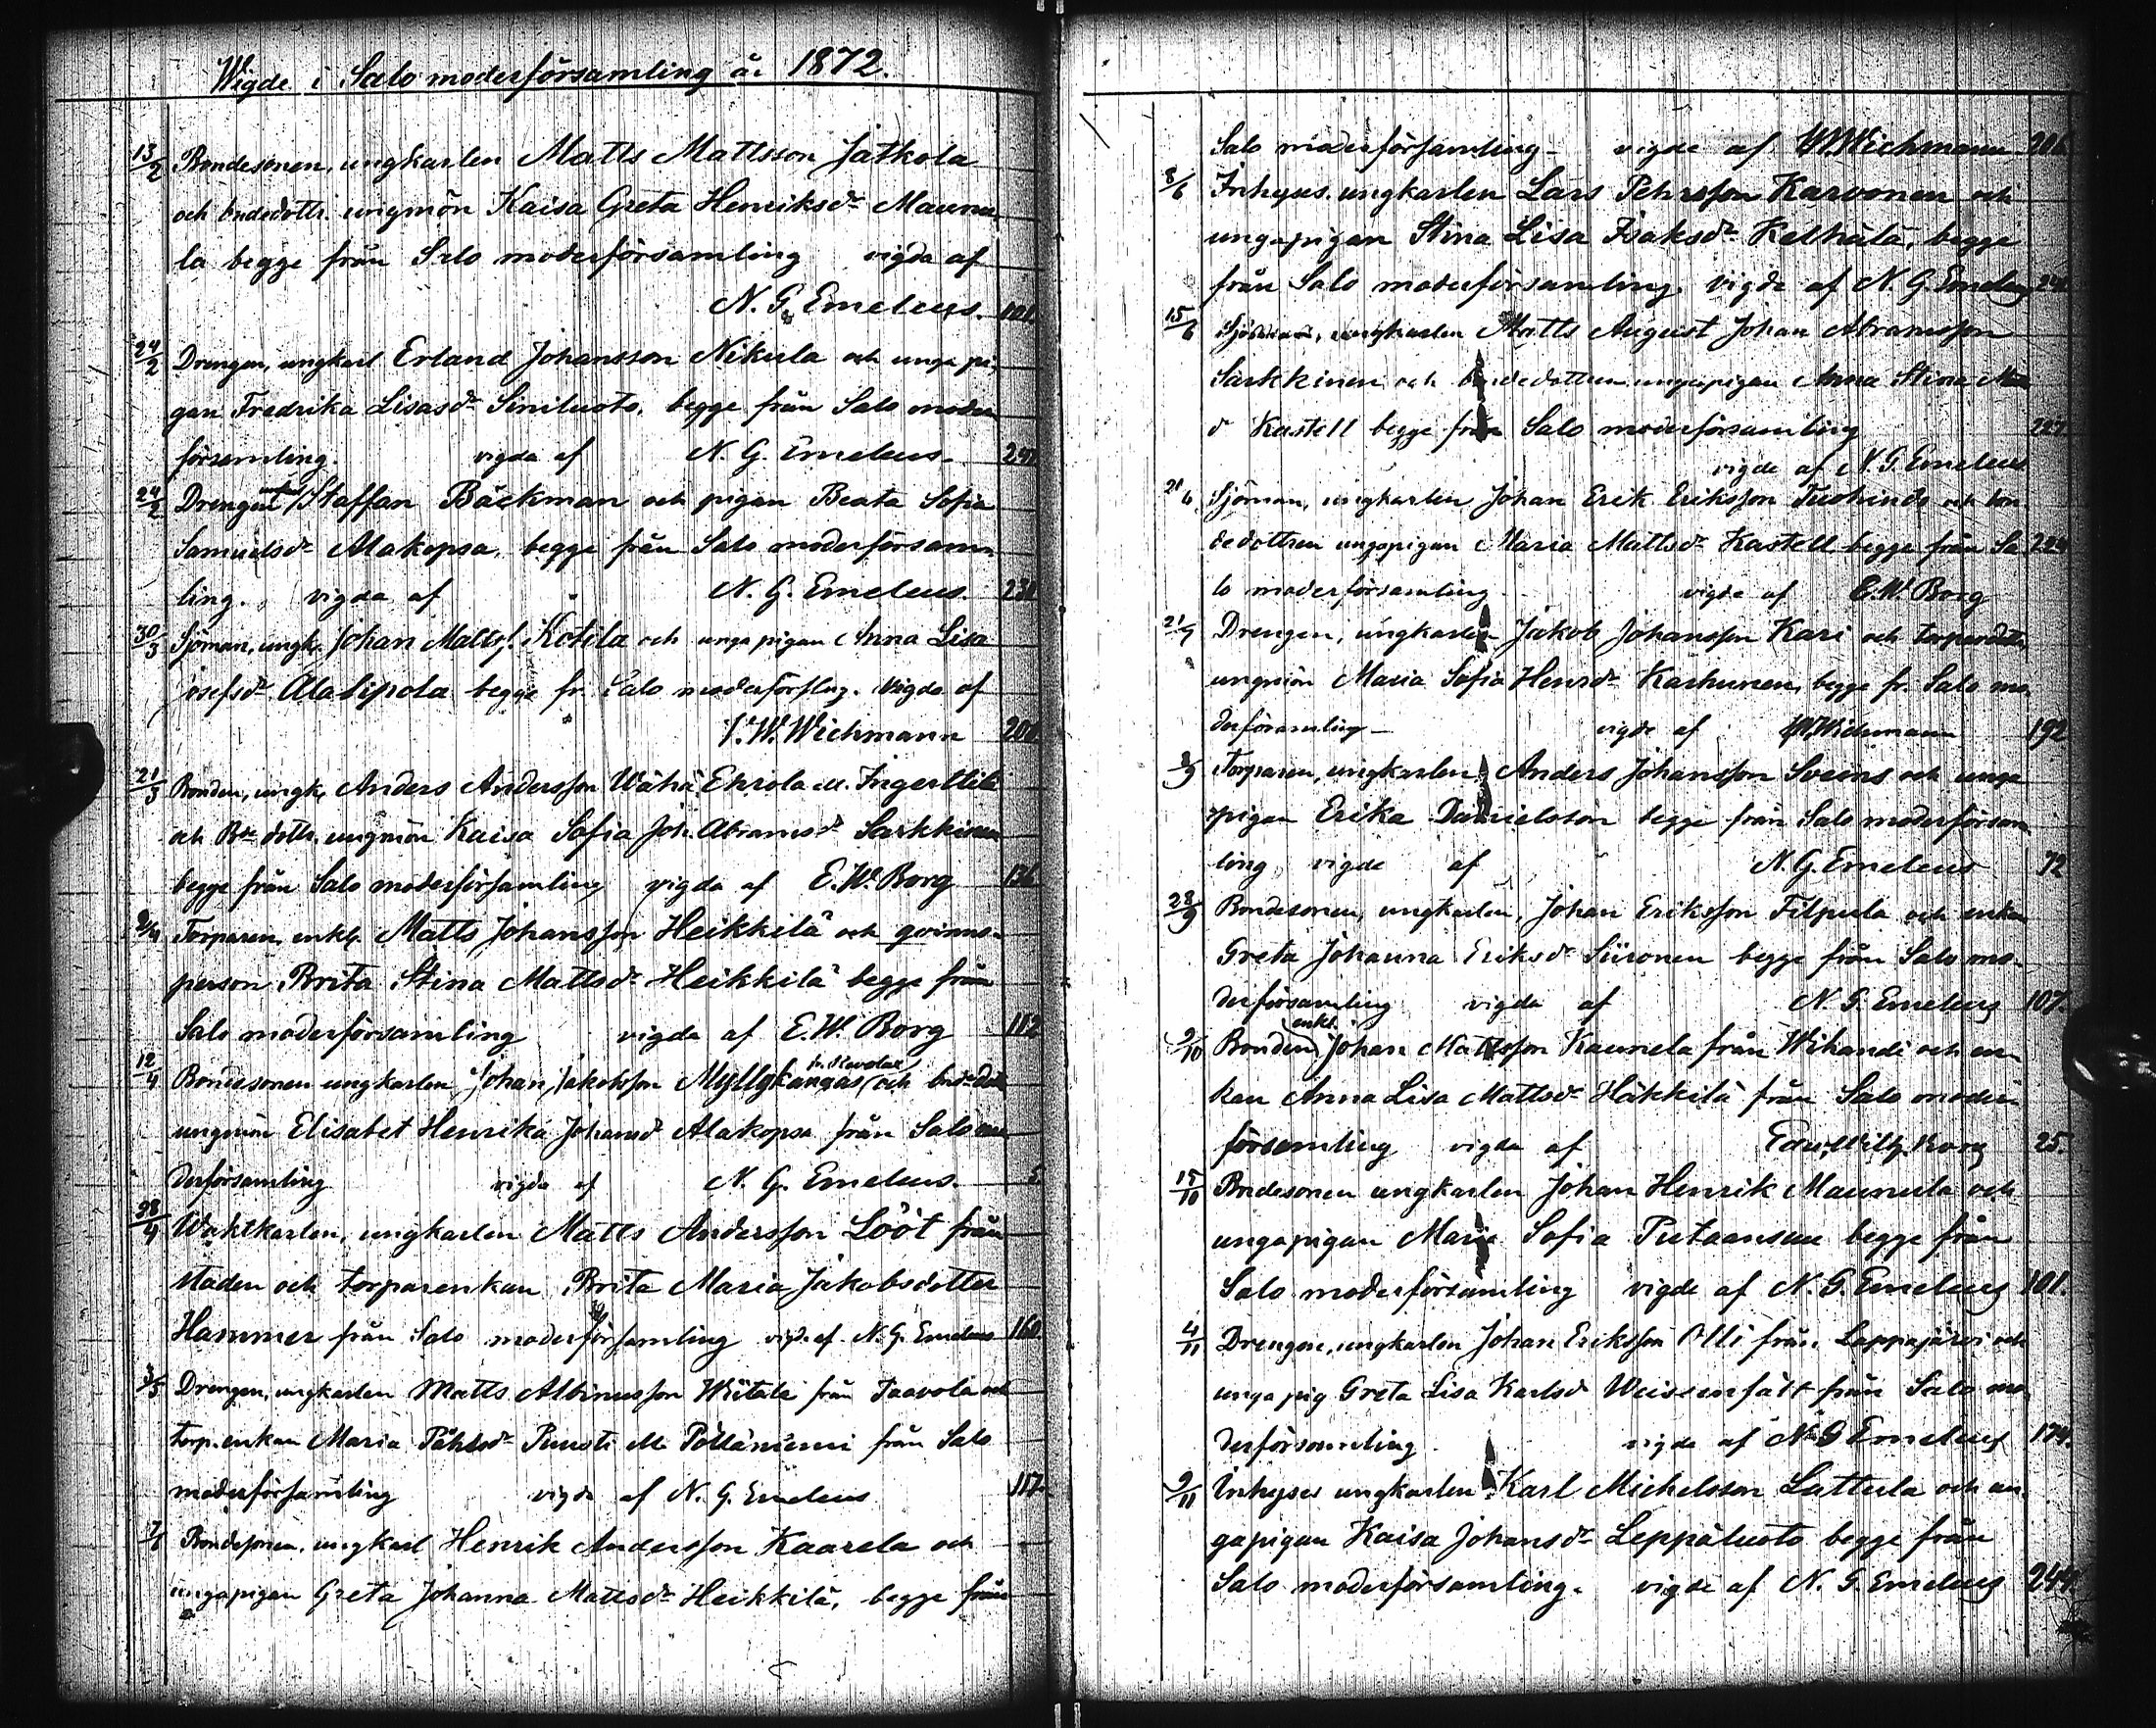 Wigde i Salo moderförsamling år 1872.
13/2 Bondesonen, ungkarlen Matts Mattsson Jatkola
och bndedottr. ungmön Kaisa Greta Henriksdr Maunu-
la begge från Salo moderförsamling vigda af
N. G. Emeleus. 101
24/2 Drengen, ungkarl Erland Johansson Nikula och unga pi-
gan Fredrika Lisasdr Siniluoto, begge från Salo moder
församling vigda af N. G. Emeleus. 247
24/2 Drengen Staffan Bäckman och pigan Beata Sofia
Samuelsdr Alakopsa, begge från Salo moderförsam-
ling. vigda af N. G. Emeleus. 231
30/3 Sjöman, ungk. Johan Matts. Kotila och unga pigan Anna Lisa
Josefsdr Alalipola begge fr. Salo moderförslng. Vigda af
V. W. Wichmann 201
21/3 Bonden, ungk. Anders Andersson Wähä Ehrola m. Ingerttilä
och Bde dottr. ungmön Kaisa Sofia Joh. Abramsdr Sarkkinen
begge från Salo moderförsamling vigda af E. W. Borg 136
2/4 Torparen, enkl. Matts Johansson Heikkilä och qvinns-
person Brita Stina Mattsdr Heikkilä begge från
Salo moderförsamling vigda af E. W. Borg 112
12/4 Bondesonen ungkarlen Johan Jakobsson Myllykangas fr. Revolax och
ungmön Elisabet Henrika Johansdr Alakopsa från Salo mo
derförsamling vigda af N. G. Emeleus. 5.
28/4 Waktkarlen, ungkarlen Matts Andersson Lööt från
staden och torparenkan Brita Maria Jakobsdotter
Hammer från Salo moderförsamling vigd. af N. G. Emeleus 160
3/5 Drengen, ungkarlen Matts Albinusson Wiitala från Paavola och
torp.enkan Maria Påhlsdr Puusti M. Pölläniemi från Salo
moderförsamling vigda af N. G. Emeleus 117.
7/6 Bondesonen, ungkarl Henrik Andersson Kaarela och
ungapigan Greta Johanna Mattsdr Heikkilä, begge från
Salo moderförsamling - vigde af V. W. Wichmann 206
8/6 Inhyses, ungkarlen Lars Pehrsson Karvonen och
ungapigan Stina Lisa Isaksdr Kelhälä, begge
från Salo moderförsamling vigde af N. G. Emeleus
15/6 Sjöman, ungkarlen Matts August Johan Abramsson
Sarkkinen och bondedottren ungapigan Anna Stina
d Kastell begge från Salo moderförsamling 227.
vigde af N. G. Emeleus
21/6 Sjöman, ungkarlen Johan Erik Eriksson Tuohinds och bon-
dedottren ungapigan Maria Mattsdr Kastell begge från Sa 224
lo moderförsamling vigde af E. W. Borg
21/7 Drengen, ungkarlen Jakob Johansson Kari och
ungmön Maria Sofia Henrdr Karhunen, begge fr. Salo mo-
derförsamling - vigde af V. W. Wichmann 192
/9 Torparen, ungkarlen Anders Johansson Sveins och unga
pigan Erika Danielsson begge från Salo moderförsam
ling vigde af N. G. Emeleus 72
28/9 Bondesonen, ungkarlen, Johan Eriksson Filpula och enkan
Greta Johanna Eriksdr Siironen begge från Salo mo-
derförsamling vigda af N. G. Emeleus 107.
9/10 Bonden, enkl. Johan Mattsson Kaunela från Wihandi och en-
kan Anna Lisa Mattsdr Häkkilä från Salo moder
församling vigda af Edv. Wilh. Borg 25.
15/10 Bondesonen ungkarlen Johan Henrik Maunula och
ungapigan Maria Sofia Putaansuu begge från
Salo moderförsamling vigde af N. G. Emeleus 101.
4/11 Drengen, ungkarlen Johan Eriksson Olli från Lappajärvi och
unga pig Greta Lisa Karlsdr Weissenfält från Salo mo
derförsamling. vigde af N G Emeleus 174.
9/11 Inhyses ungkarlen Karl Michelsson Lattula och un-
gapigan Kaisa Johansdr Leppäluoto begge från
Salo moderförsamling. vigde af N. G. Emeleus 244